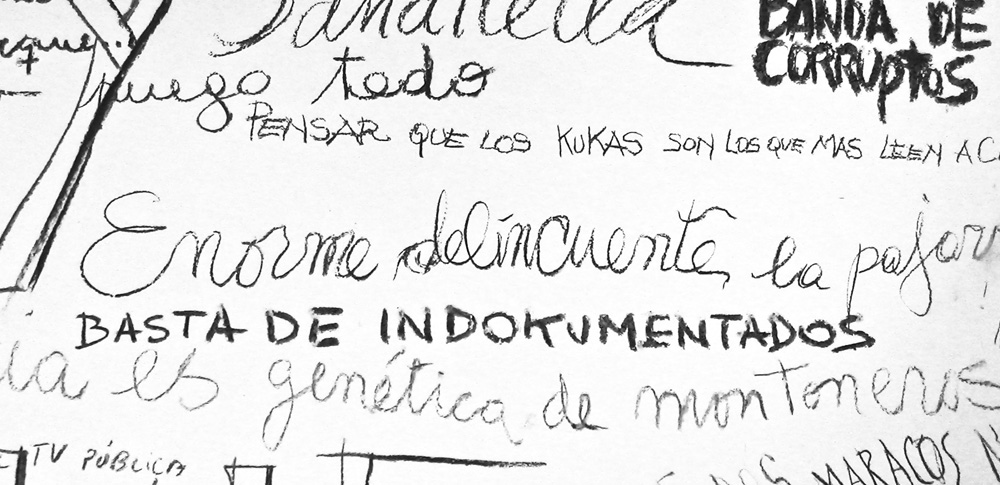 BANDA DE
CORRUPTOS
juego todo
PENSAR QUE LOS KUKAS SON LOS QUE MAS LEEN
Enorme delincuente, la
BASTA DE INDOKUMENTADOS
es genética de montoneros
TV PÚBLICA
MARACOS